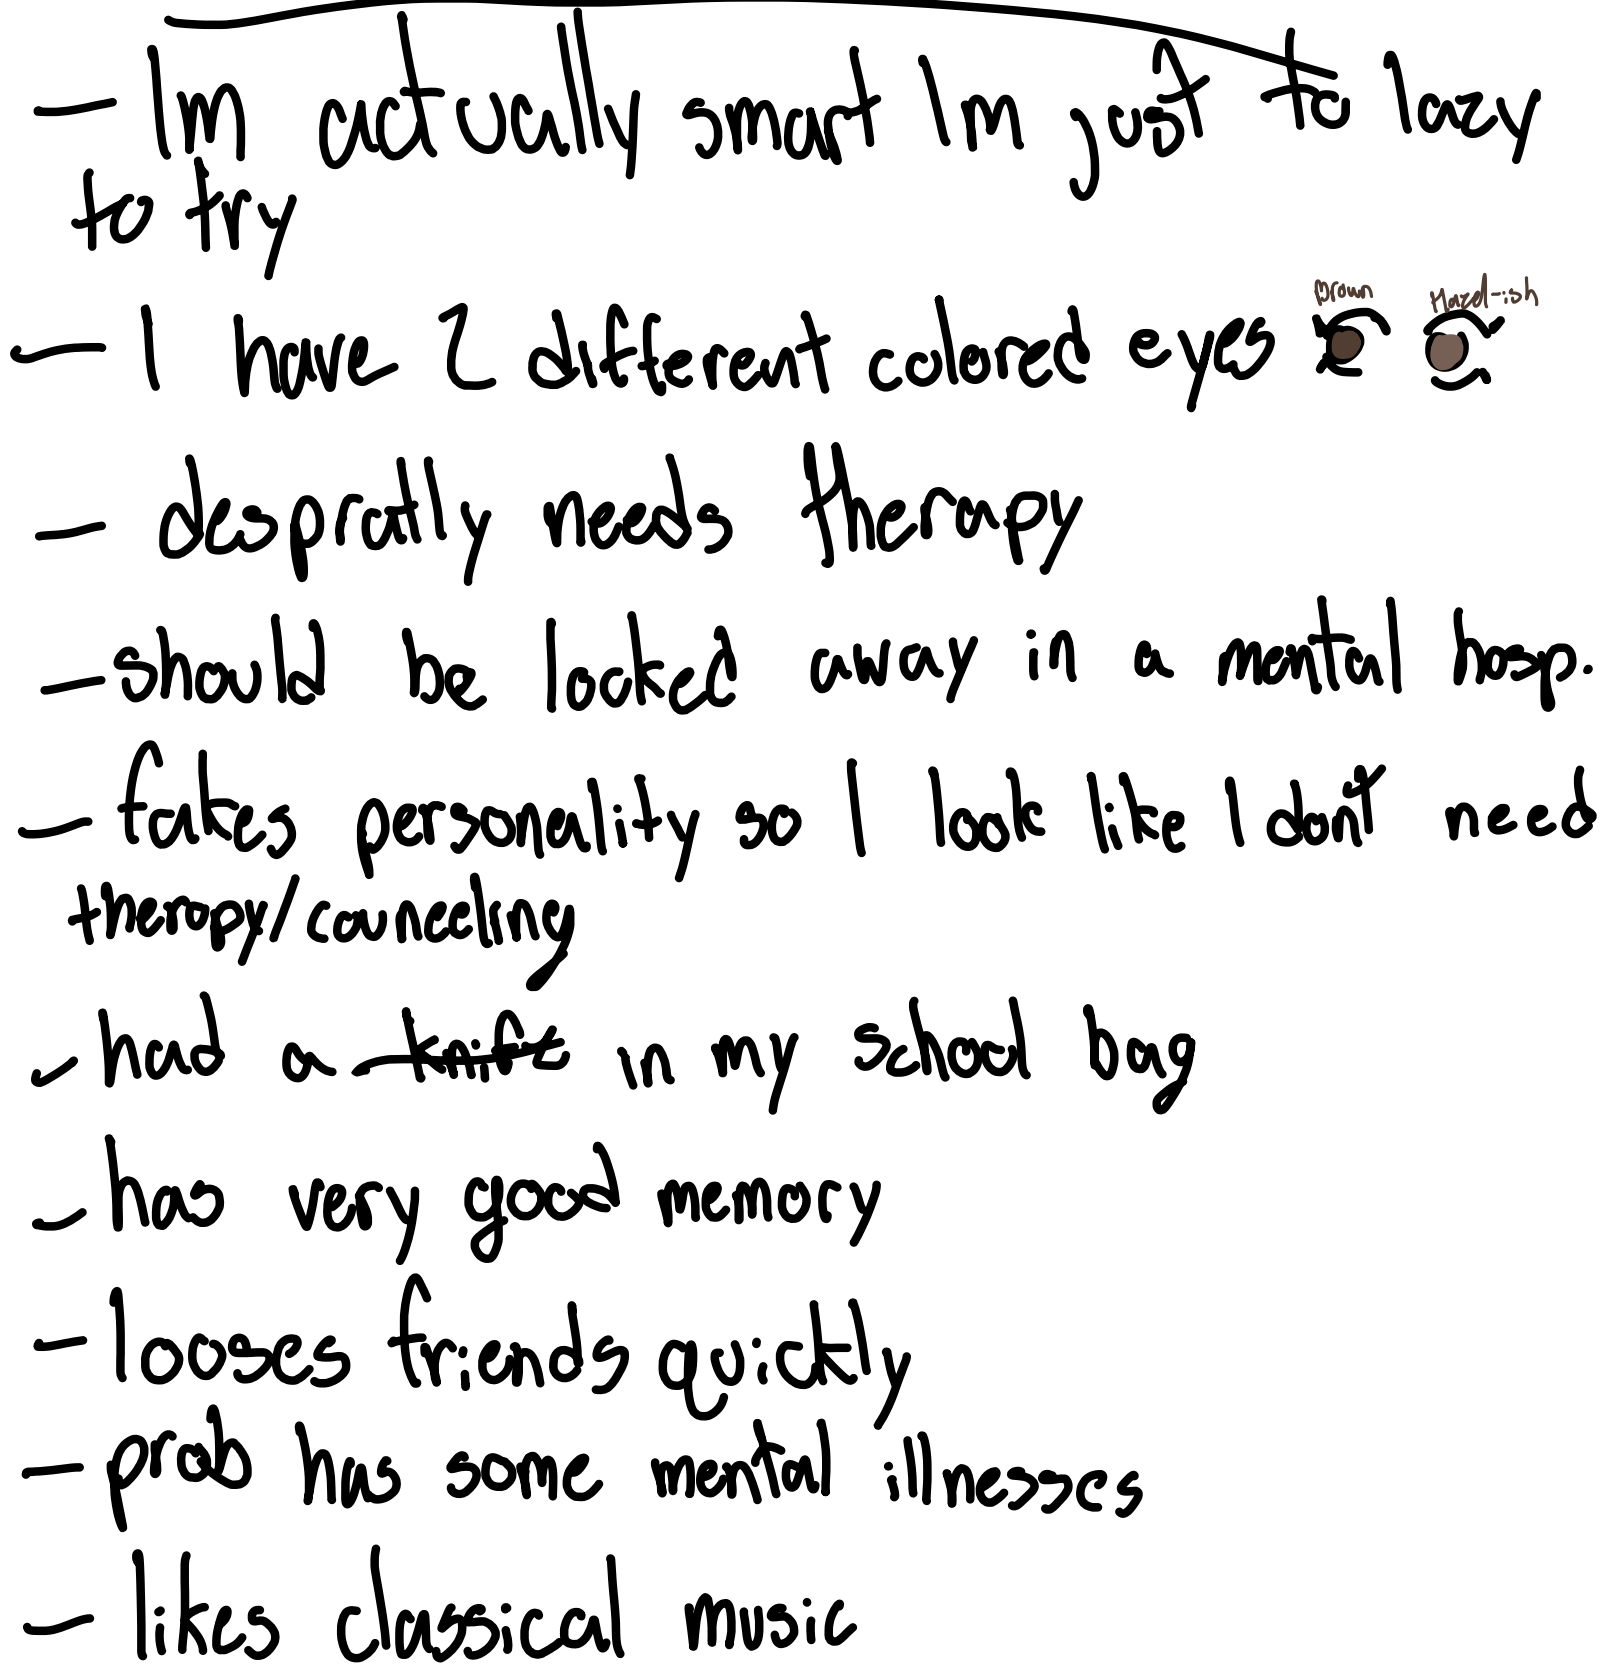 - Im actually smart Im just to lazy
to try
Brown Hazel-ish
- I have 2 different colored eyes
- despratly needs therapy
- should be locked away in a mental hosp.
- fakes personality so I look like I don't need
therapy/counceling
- had a knife in my school bag
- has very good memory
- looses friends quickly
- prob has some mental illnesses
- likes classical music